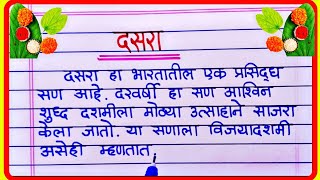 दसरा
दसरा हा भारतातील एक प्रसिद्ध
सण आहे. दरवर्षी हा सण आश्विन
शुध्द दशमीला मोठ्या उत्साहाने साजरा
केला जातो. या सणाला विजयादशमी
असेही म्हणतात.